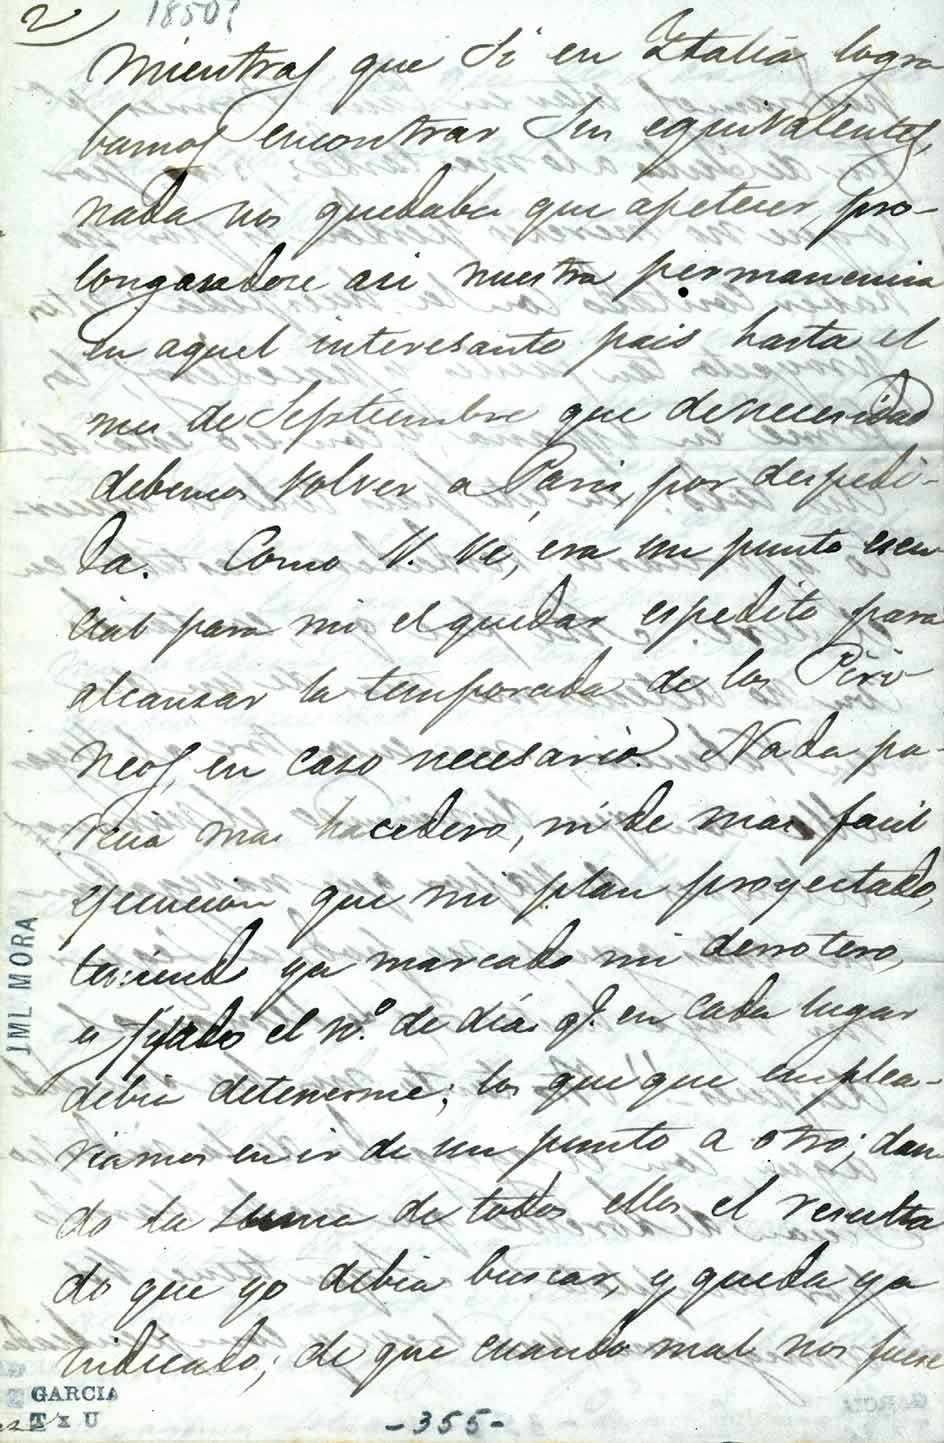 2) 1850?
Mientras que si en Italia logra
bamos encontrar sus equivalentes,
nada nos quedaba que apetecer, pro-
longandose asi nuestra permanencia
en aquel interesante pais hasta el
mes de Septiembre que de necesidad
debemos volver a Paris, por despedi-
da. Como V. vé, era un punto esen
cial para mi el quedar espedito para
alcanzar la temporada de los Piri-
neos, en caso necesario. Nada pa-
recia mas hacedero, ni de mas facil
ejecucion que mi plan proyectado,
teniendo ya marcado mi derrotero,
y fijado el nº. de dias q.e en cada lugar
debia detenerme; los que que emplea-
riamos en ir de un punto a otro; dan
do la suma de todos ellos el resulta
do que yo debia buscar, y queda ya
indicado; de que cuando mal nos fuese
JML MORA
GARCIA
T x U
-355-